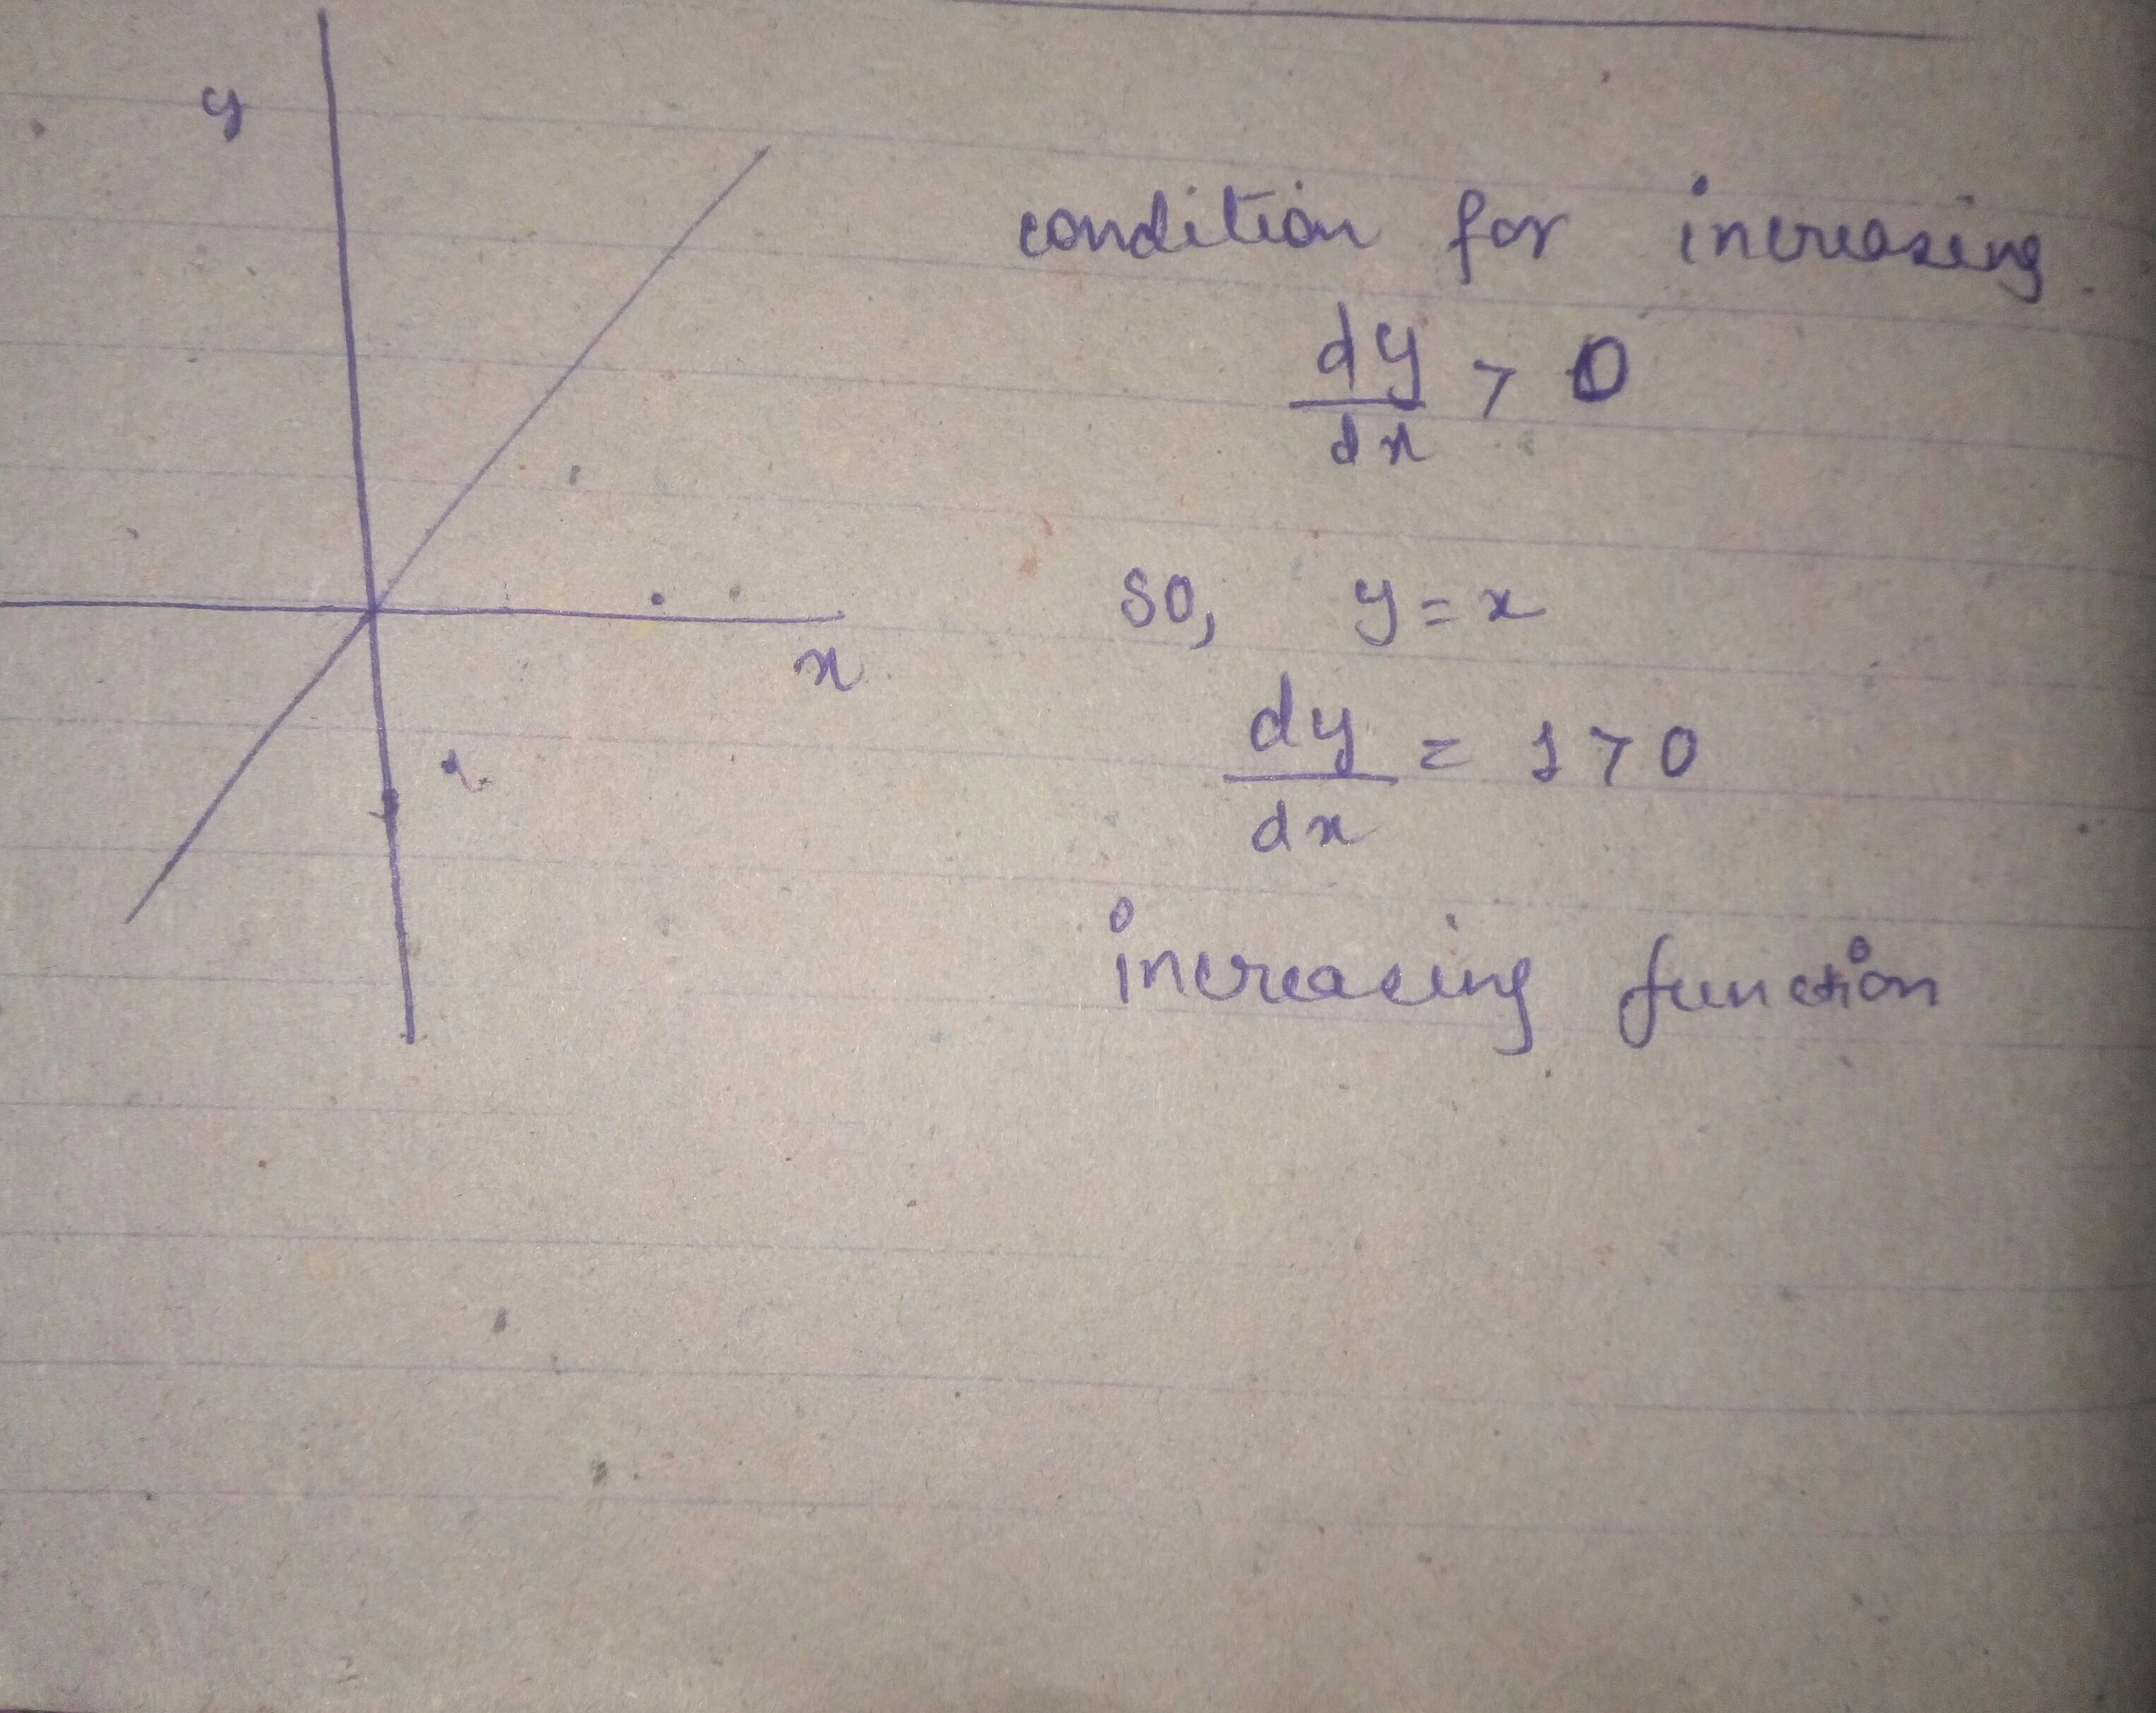 y
x
condition for increasing
dy/dx > 0
so, y = x
dy/dx = 1 > 0
increasing function